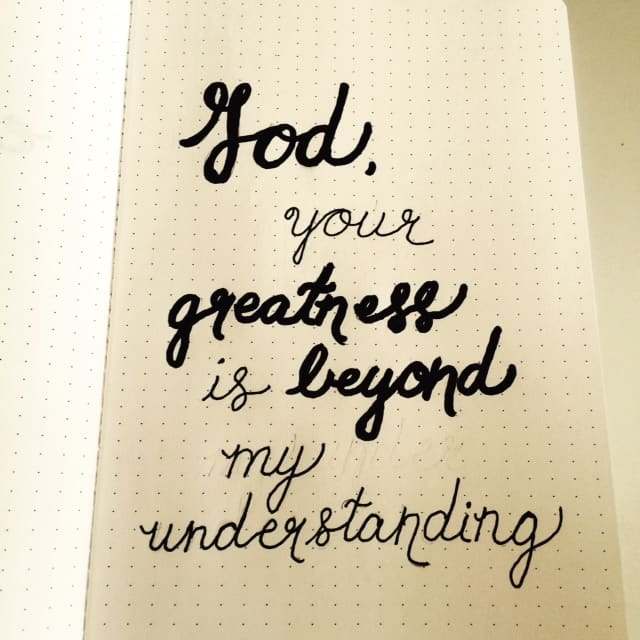 God,
your
greatness
is beyond
my
understanding